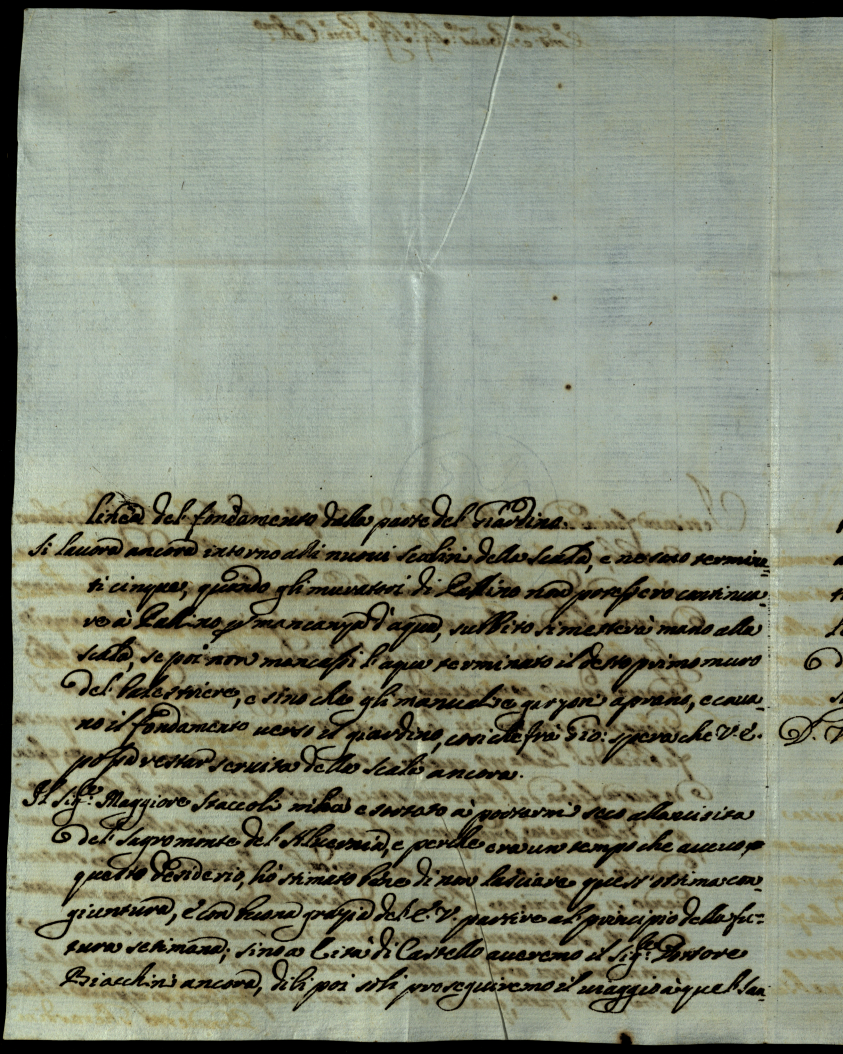 linea del fondamento dalla parte del Giardino.
Si lavora ancora intorno alli nuovi scalini della scala, e ne sono termina=
ti cinque, quando gli muratori di Pallino non potessero continua=
re à Pallino p mancanza d'aqua, subbito si metterà mano alla
scala, se poi non mancassi l'aqua terminato il detto primo muro
del balestriere, e sino che gli manuali e garzoni aprano, e cava=
no il fondamento verso il giardino, così che frà Gio: spera che V. E.
possa restar servita della scala ancora.
Il Sig.re Maggiore Staccoli mi hà esortato à portarmi seco alla visita
del Sagro monte del Alvernia, e perche era un tempo che avevo
questo desiderio, hò stimato bene di non lasciare quest'ottima con=
giuntura, e con buona grazia del E. V. partire al principio della fu=
tura setimana; sino a Cità di Castello averemo il Sig.re Dottore
Biacchini ancora, di li poi soli proseguiremo il viaggio à quel San=